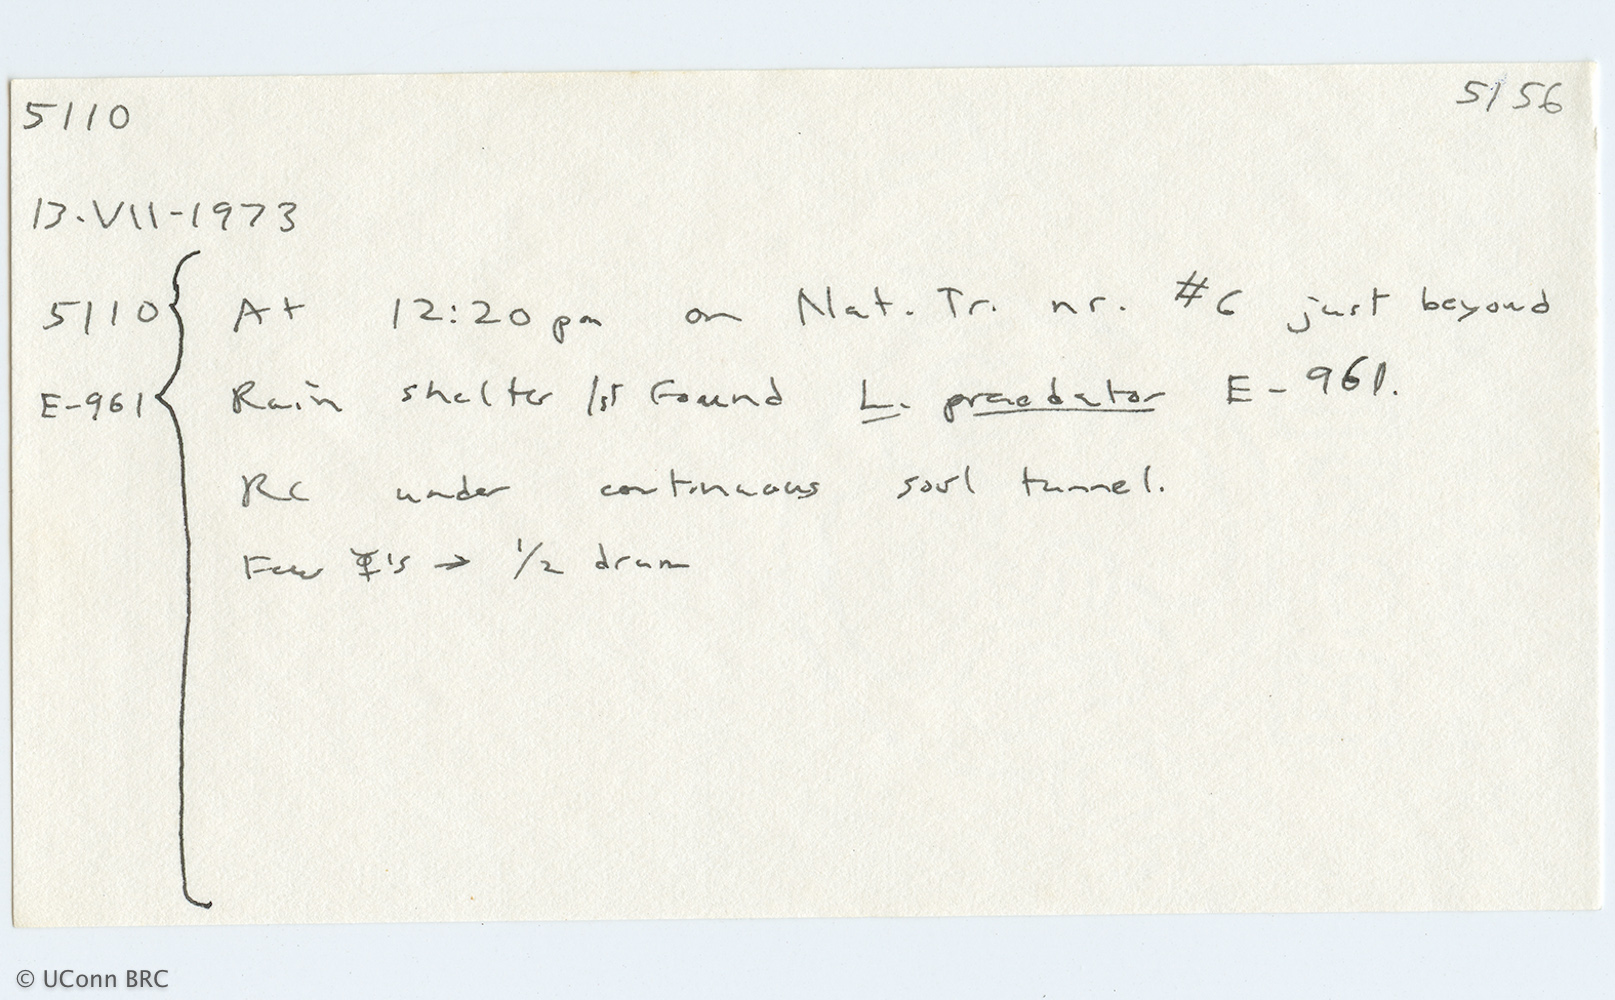 5110 5156
13.VII-1973
5110 At 12:20pm on Nat. Tr. nr. #6 just beyond
E-961 Rain shelter 1st Found L. praedator E-961.
RC under continuous soil tunnel.
Few ☿'s → 1/2 dram
© UConn BRC